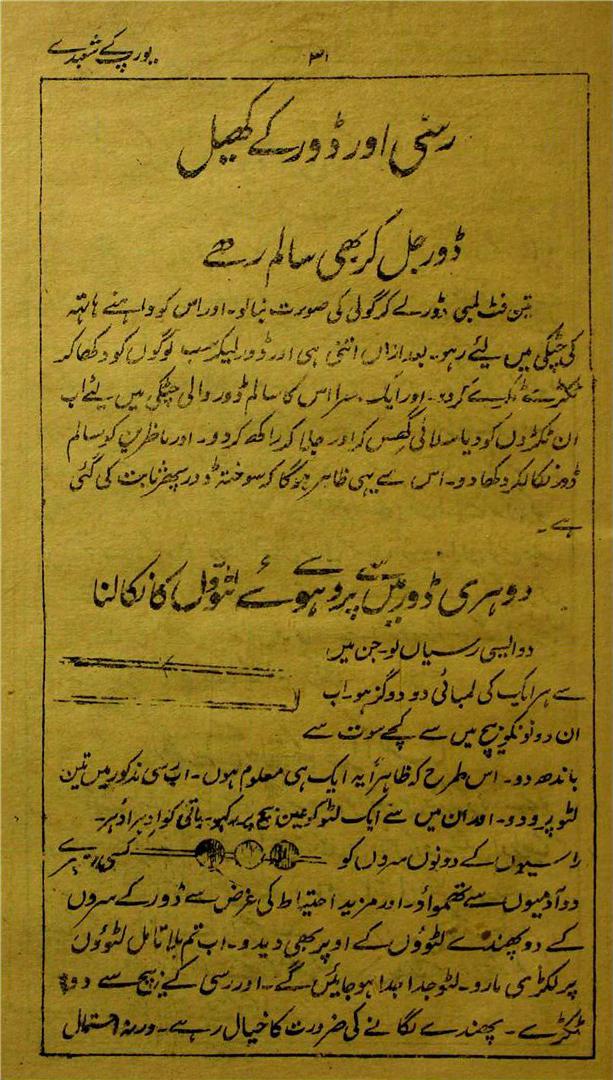 یورپ کے شعبدے
۳۱
رسّی اور ڈور کے کھیل
ڈور جل کر بھی سالم رہے
تین فٹ لمبی ڈور لے کر گولی کی صورت بنا لو۔ اور اس کو داہنے ہاتھ
کی چٹکی میں لیئے رہو۔ بعد ازاں اتنی ہی اور ڈور لیکر سب لوگوں کو دکھا کر
ٹکڑے ٹکڑے کر دو۔ اور ایک سرا اس کا سالم ڈور والی چٹکی میں لئے اب
ان ٹکڑوں کو دیا سلائی گھس کر اور جلا کر راکھ کر دو۔ اور ناظرین کو سالم
ڈور نکالکر دکھا دو۔ اس سے یہی ظاہر ہوگا کہ سوختہ ڈور پھر ثابت کی گئی
ہے۔
دوہری ڈور میں سے پروے ہوئے لٹوّوں کا نکالنا
دو ایسی رسیاں لو۔ جن میں
سے ہر ایک کی لمبائی دو دو گز ہو۔ اب
ان دونونکو بیچ میں سے کچے سوت سے
باندھ دو۔ اس طرح کہ ظاہراً یہ ایک ہی معلوم ہوں۔ اب رسی مذکور میں تین
لٹو پرو دو۔ اور ان میں سے ایک لٹو کو عین بیچ پر رکھو۔ باقی کو ادہر اُدہر۔
راسیوں کے دونوں سروں کو
دو آدمیوں سے تھمواؤ۔ اور مزید احتیاط کی غرض سے ڈور کے سروں
کے دو پھندے لٹوؤں کے اوپر بھی دیدو۔ اب تم بلا تامل لٹوؤں
پر لکڑی مارو۔ لٹو جدا جدا ہو جائیں گے۔ اور رسی کے بیچ سے دو
ٹکڑے۔ پھندے لگانے کی ضرورت کا خیال رہے۔ ورنہ احتمال